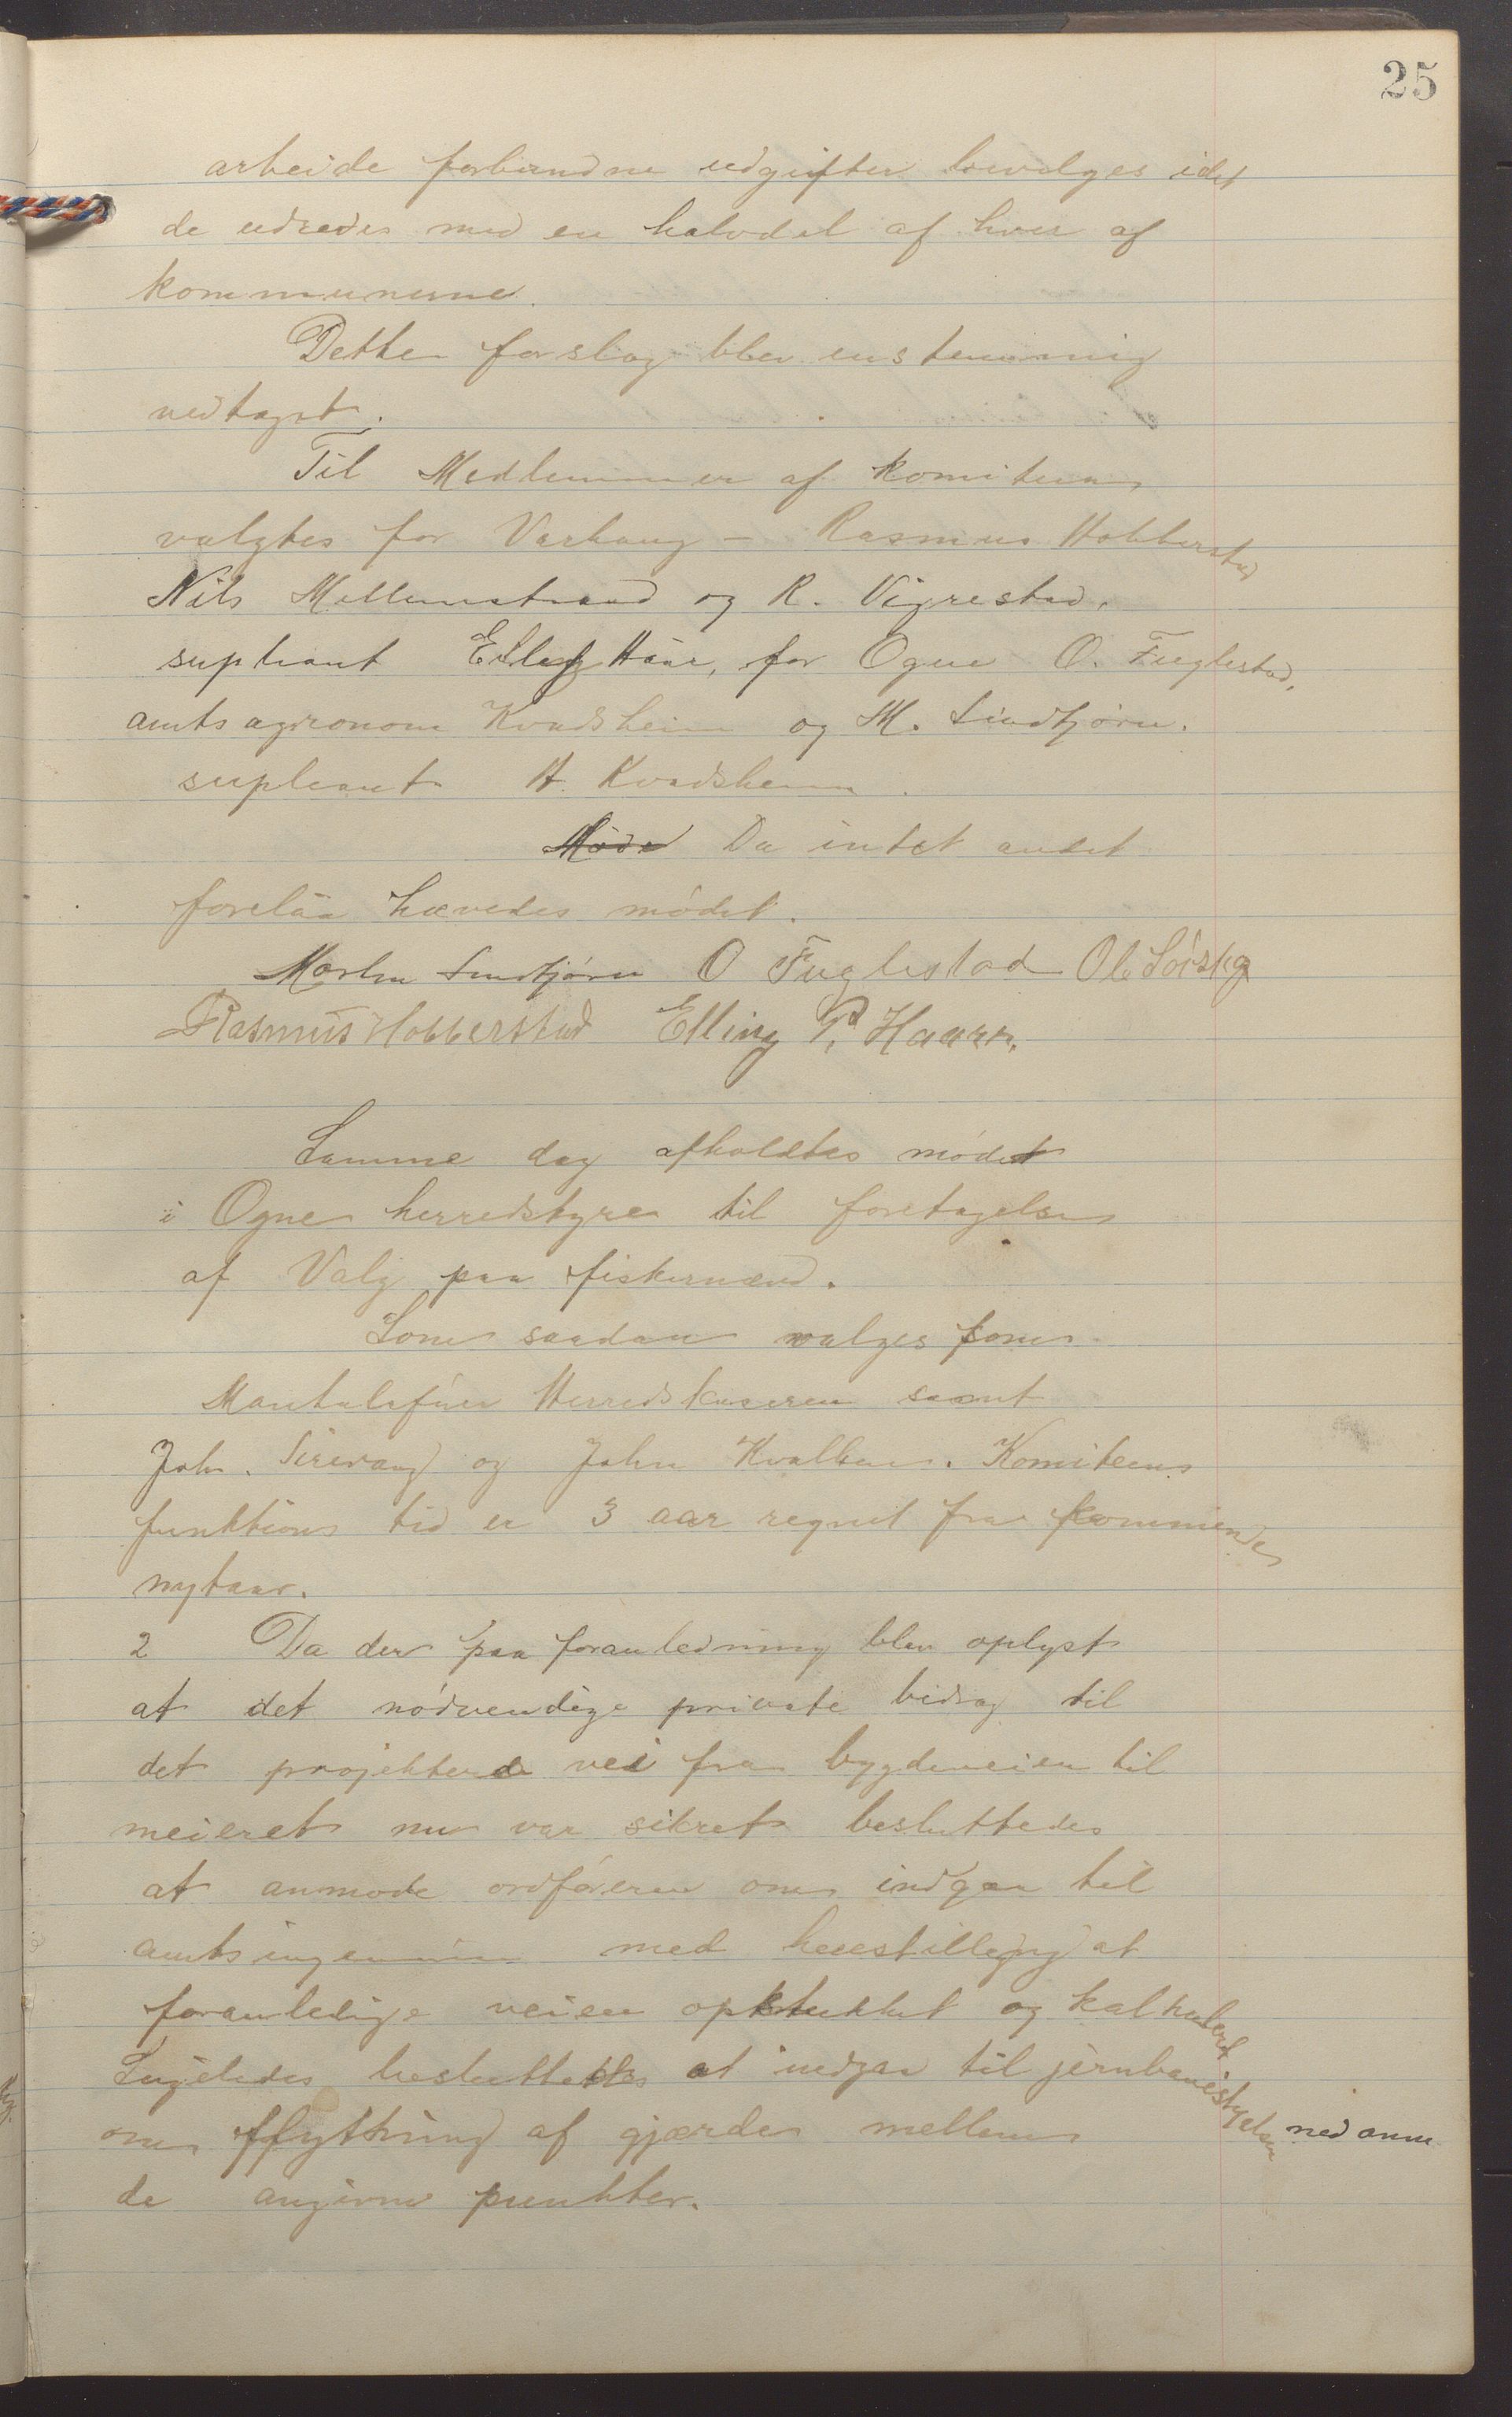 25
arbeide forbundne udgifter bevilges idet
de udredes med en halvdel af hver af
kommunerne.
Dette forslag blev enstemmig
vedtaget.
Til Medlemmer af komiteen
valgtes for Varhaug - Rasmus Hobberstad
Nils Mellemstrand og R. Vigrestad,
supleant Elling Håar, for Ogne O. Fuglestad,
amtsagronom Kvadsheim og M. Sindtjørn.
supleant H. Kvadsheim.
Møde Da intet andet
forelåa hævedes mødet.
Morten Sindtjørn O Fuglestad Ole
Rasmus Hobberstad Elling P. Haarr.
Samme dag afholdtes mødet
i Ogne herredstyre til foretagelse
af Valg paa fiskernævd.
Som saadan valges som
Mantalsfører Herredskaseren samt
John. Sirevaag og John Kvalbein. Komiteens
funktions tid er 3 aar regnet fra kommende
nytaar.
2 Da der paa foranledning blev oplyst
at det nødvendige private bidrag til
det projekterede vei fra bygdeveien til
meieret nu var sikret besluttedes
at anmode ordføreren om indgaa til
amtsingeniøren med henstilling at
foranledige veien opstukket og kalkuleret
Ligeledes besluttedes at indgaa til jernbanestyrelsen med anm
om flytning af gjærder mellem
de angivne punkter.